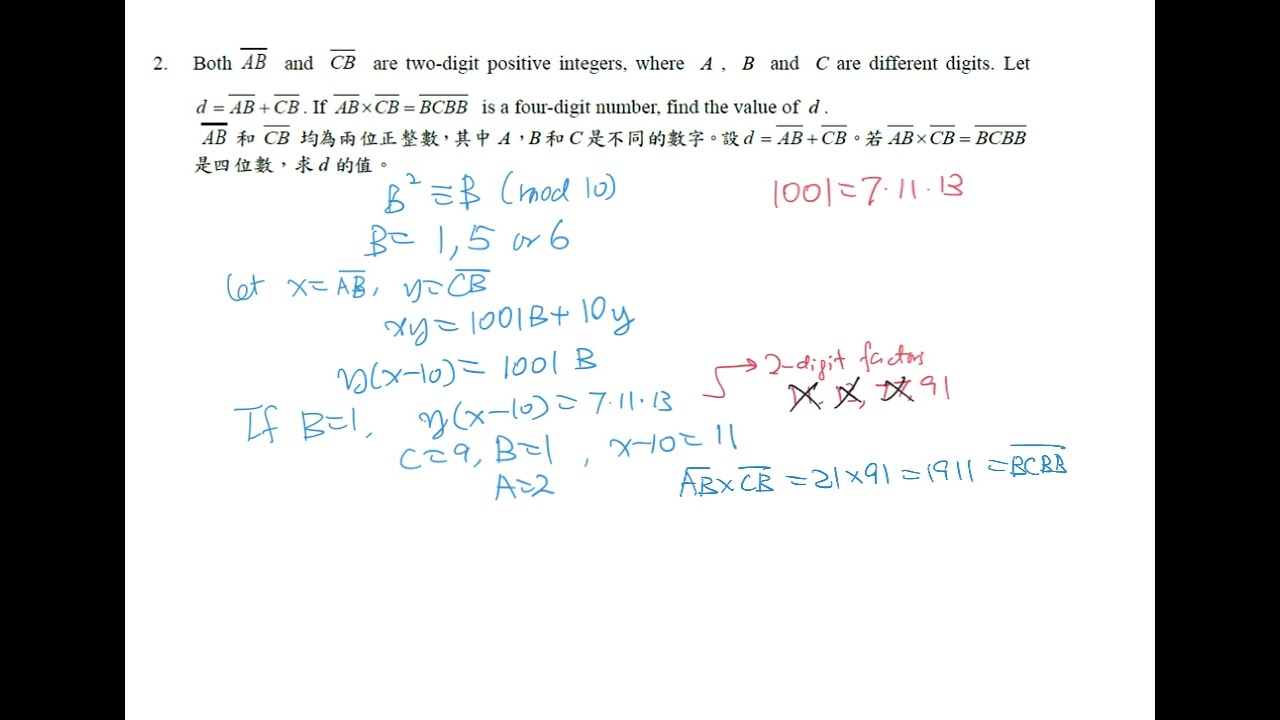 2. Both AB and CB are two-digit positive integers, where A , B and C are different digits. Let
d = AB + CB . If AB × CB = BCBB is a four-digit number, find the value of d .
AB 和 CB 均為兩位正整數，其中 A，B和 C 是不同的數字。設 d = AB + CB 。若 AB × CB = BCBB
是四位數，求 d 的值。
B² ≡ B (mod 10)
1001 = 7·11·13
B = 1, 5 or 6
Let x = AB, y = CB
xy = 1001B + 10y
y(x-10) = 1001 B
→ 2-digit factors
If B=1, y(x-10) = 7·11·13
11, 13, 77, 91
C=9, B=1, x-10 = 11
A=2
AB × CB = 21 × 91 = 1911 = BCBB